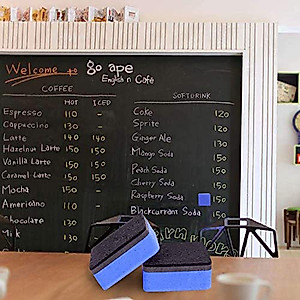 Welcome to go ape
English n Café
COFFEE
HOT ICED
Espresso 110 -
Cappuccino 130 -
Latte 140 140
Hazelnut Latte 150 150
Vanilla Latte 150 150
Caramel Latte 150 150
Mocha 150 150
Americano 110 -
Chocolate 130
Milk
SOFTDRINK
Coke 120
Sprite 120
Ginger Ale 130
Mango Soda 150
Peach Soda 150
Cherry Soda 150
Raspberry Soda 150
Blackcurrant Soda 150